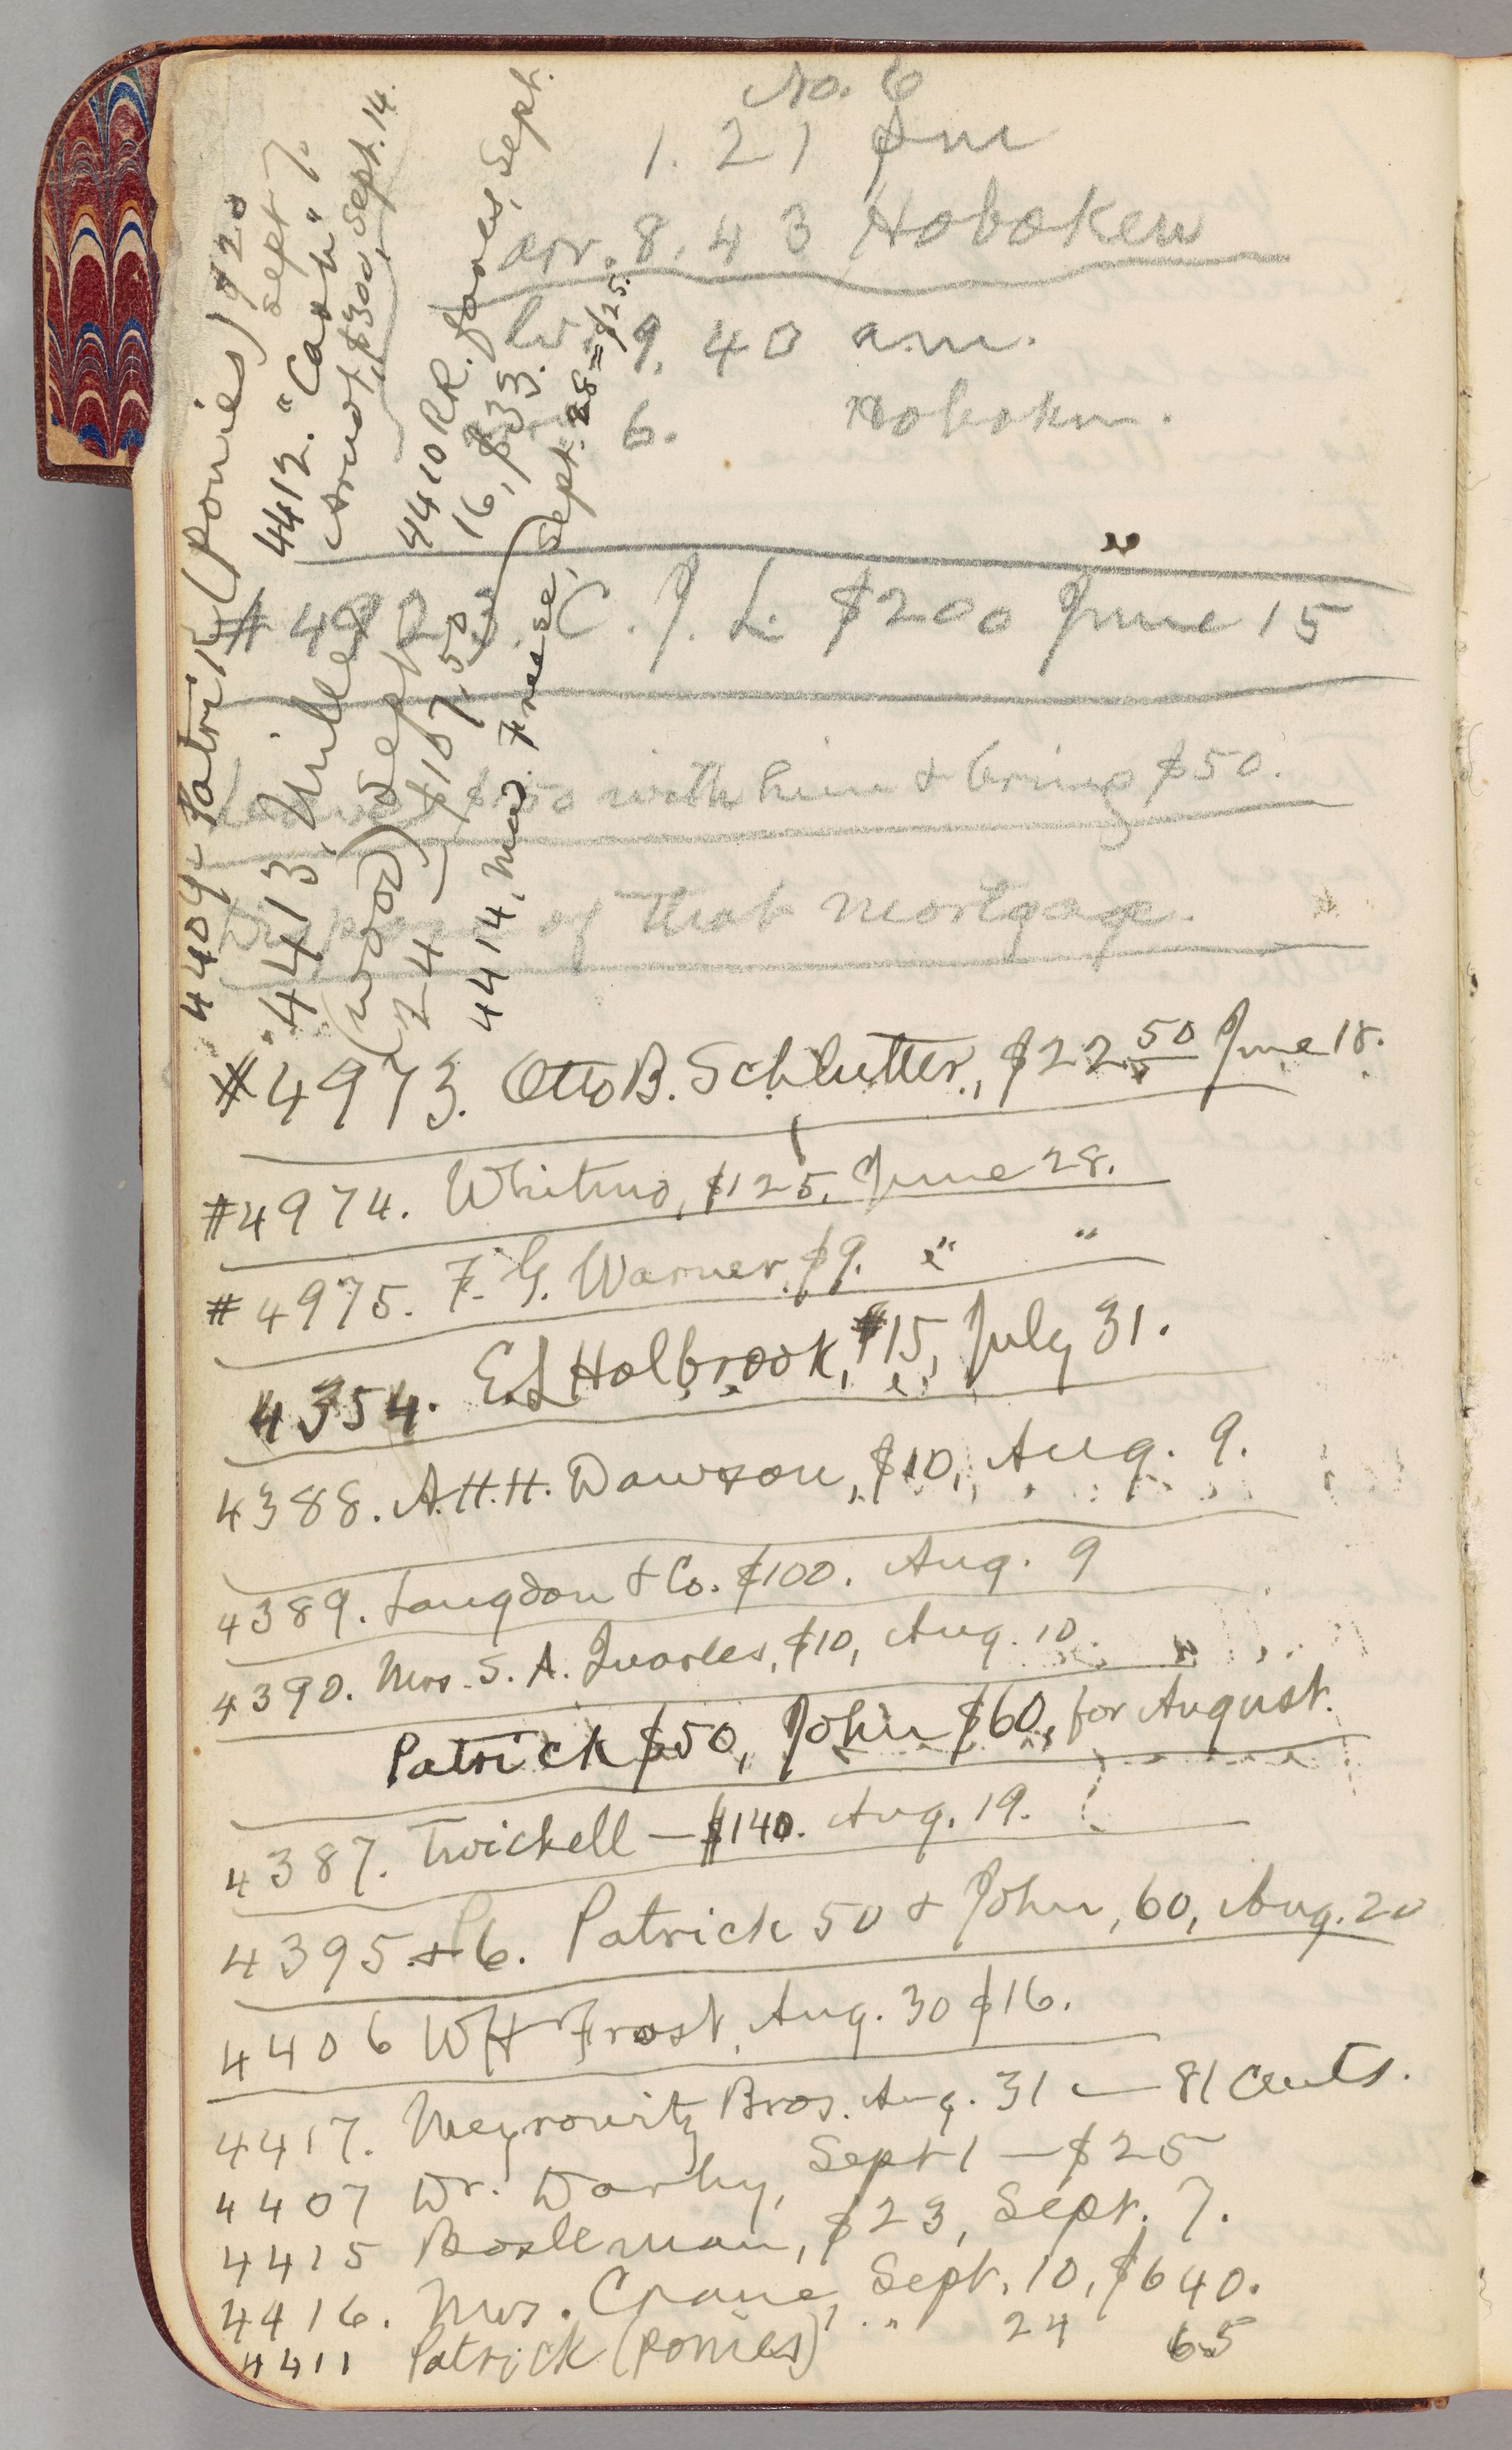 No. 6
1. 21 pm
arr. 8. 43 Hoboken
lv. 9. 40 a.m.
6. Hoboken.
# 4972. C. J. L. $200 June 15
Leave $150 with him & bring $50.
Dispose of that mortgage.
#4973. Otto B. Schlutter, $22.50 June 18.
#4974. Whitmo, $125, June 28.
#4975. F. G. Warner $9. " "
4354. E L Holbrook, $15, July 31.
4388. A. H. H. Dawson, $10, Aug. 9.
4389. Langdon & Co. $100. Aug. 9
4390. Mrs. S. A. Quarles, $10, Aug. 10.
Patrick $50, John $60, for August.
4387. Twichell — $140. Aug. 19.
4395 & 6. Patrick 50 & John, 60, Aug. 20
4406 W H Frost, Aug. 30 $16.
4417. Meyrowitz Bros. Aug. 31 — 81 cents.
4407 Dr. Darby, Sept 1 — $25
4415 Bosleman, $23, Sept. 7.
4416. Mrs. Crane, Sept. 10, $640.
4411 Patrick (ponies) " 24 65
4409 - Patrick (ponies) $20
Sept 7
4412. "Cash" 7.
Arnot, $300, Sept. 14.
4410 RR. fares, Sept.
16, $35.
4413, Miller
(wood) Sept
24 $107.50
4414, Mrs. Freese, Sept. 28 = $25.